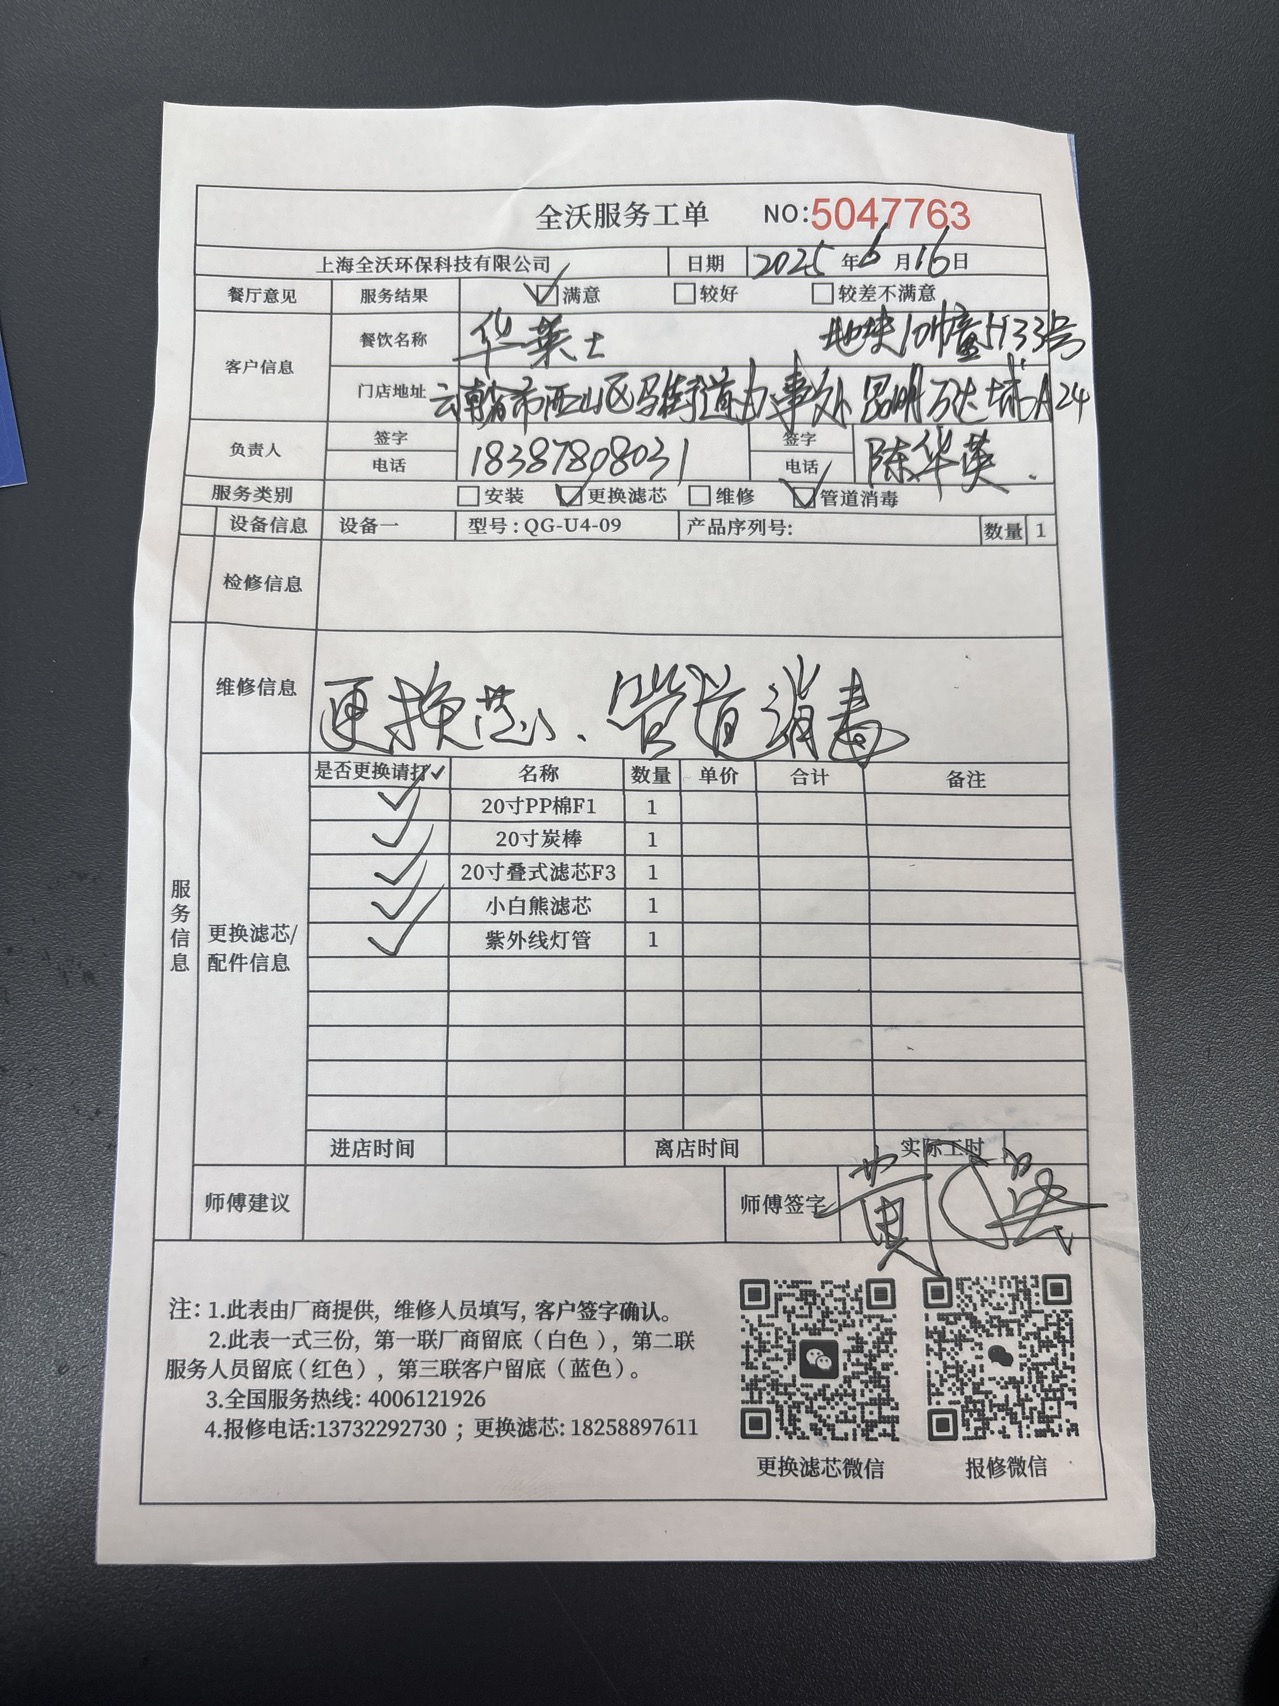 全沃服务工单 NO:5047763
上海全沃环保科技有限公司 日期 2025年6月16日
餐厅意见 服务结果 满意 较好 较差不满意
客户信息 餐饮名称 华莱士 号
门店地址 云南省 市西山区马街街道办事处昆明万达 A24
负责人 签字 电话 18387808031 签字 电话 陈华英
服务类别 安装 更换滤芯 维修 管道消毒
设备信息 设备一 型号:QG-U4-09 产品序列号: 数量 1
检修信息
维修信息 更换芯、管道消毒
服务信息
更换滤芯/配件信息
是否更换请打✓ 名称 数量 单价 合计 备注
✓ 20寸PP棉F1 1
✓ 20寸炭棒 1
✓ 20寸叠式滤芯F3 1
✓ 小白熊滤芯 1
✓ 紫外线灯管 1
进店时间 离店时间 实际工时
师傅建议 师傅签字 黄
注: 1.此表由厂商提供, 维修人员填写, 客户签字确认。
2.此表一式三份, 第一联厂商留底(白色), 第二联
服务人员留底(红色), 第三联客户留底(蓝色)。
3.全国服务热线: 4006121926
4.报修电话:13732292730 ; 更换滤芯: 18258897611
更换滤芯微信 报修微信